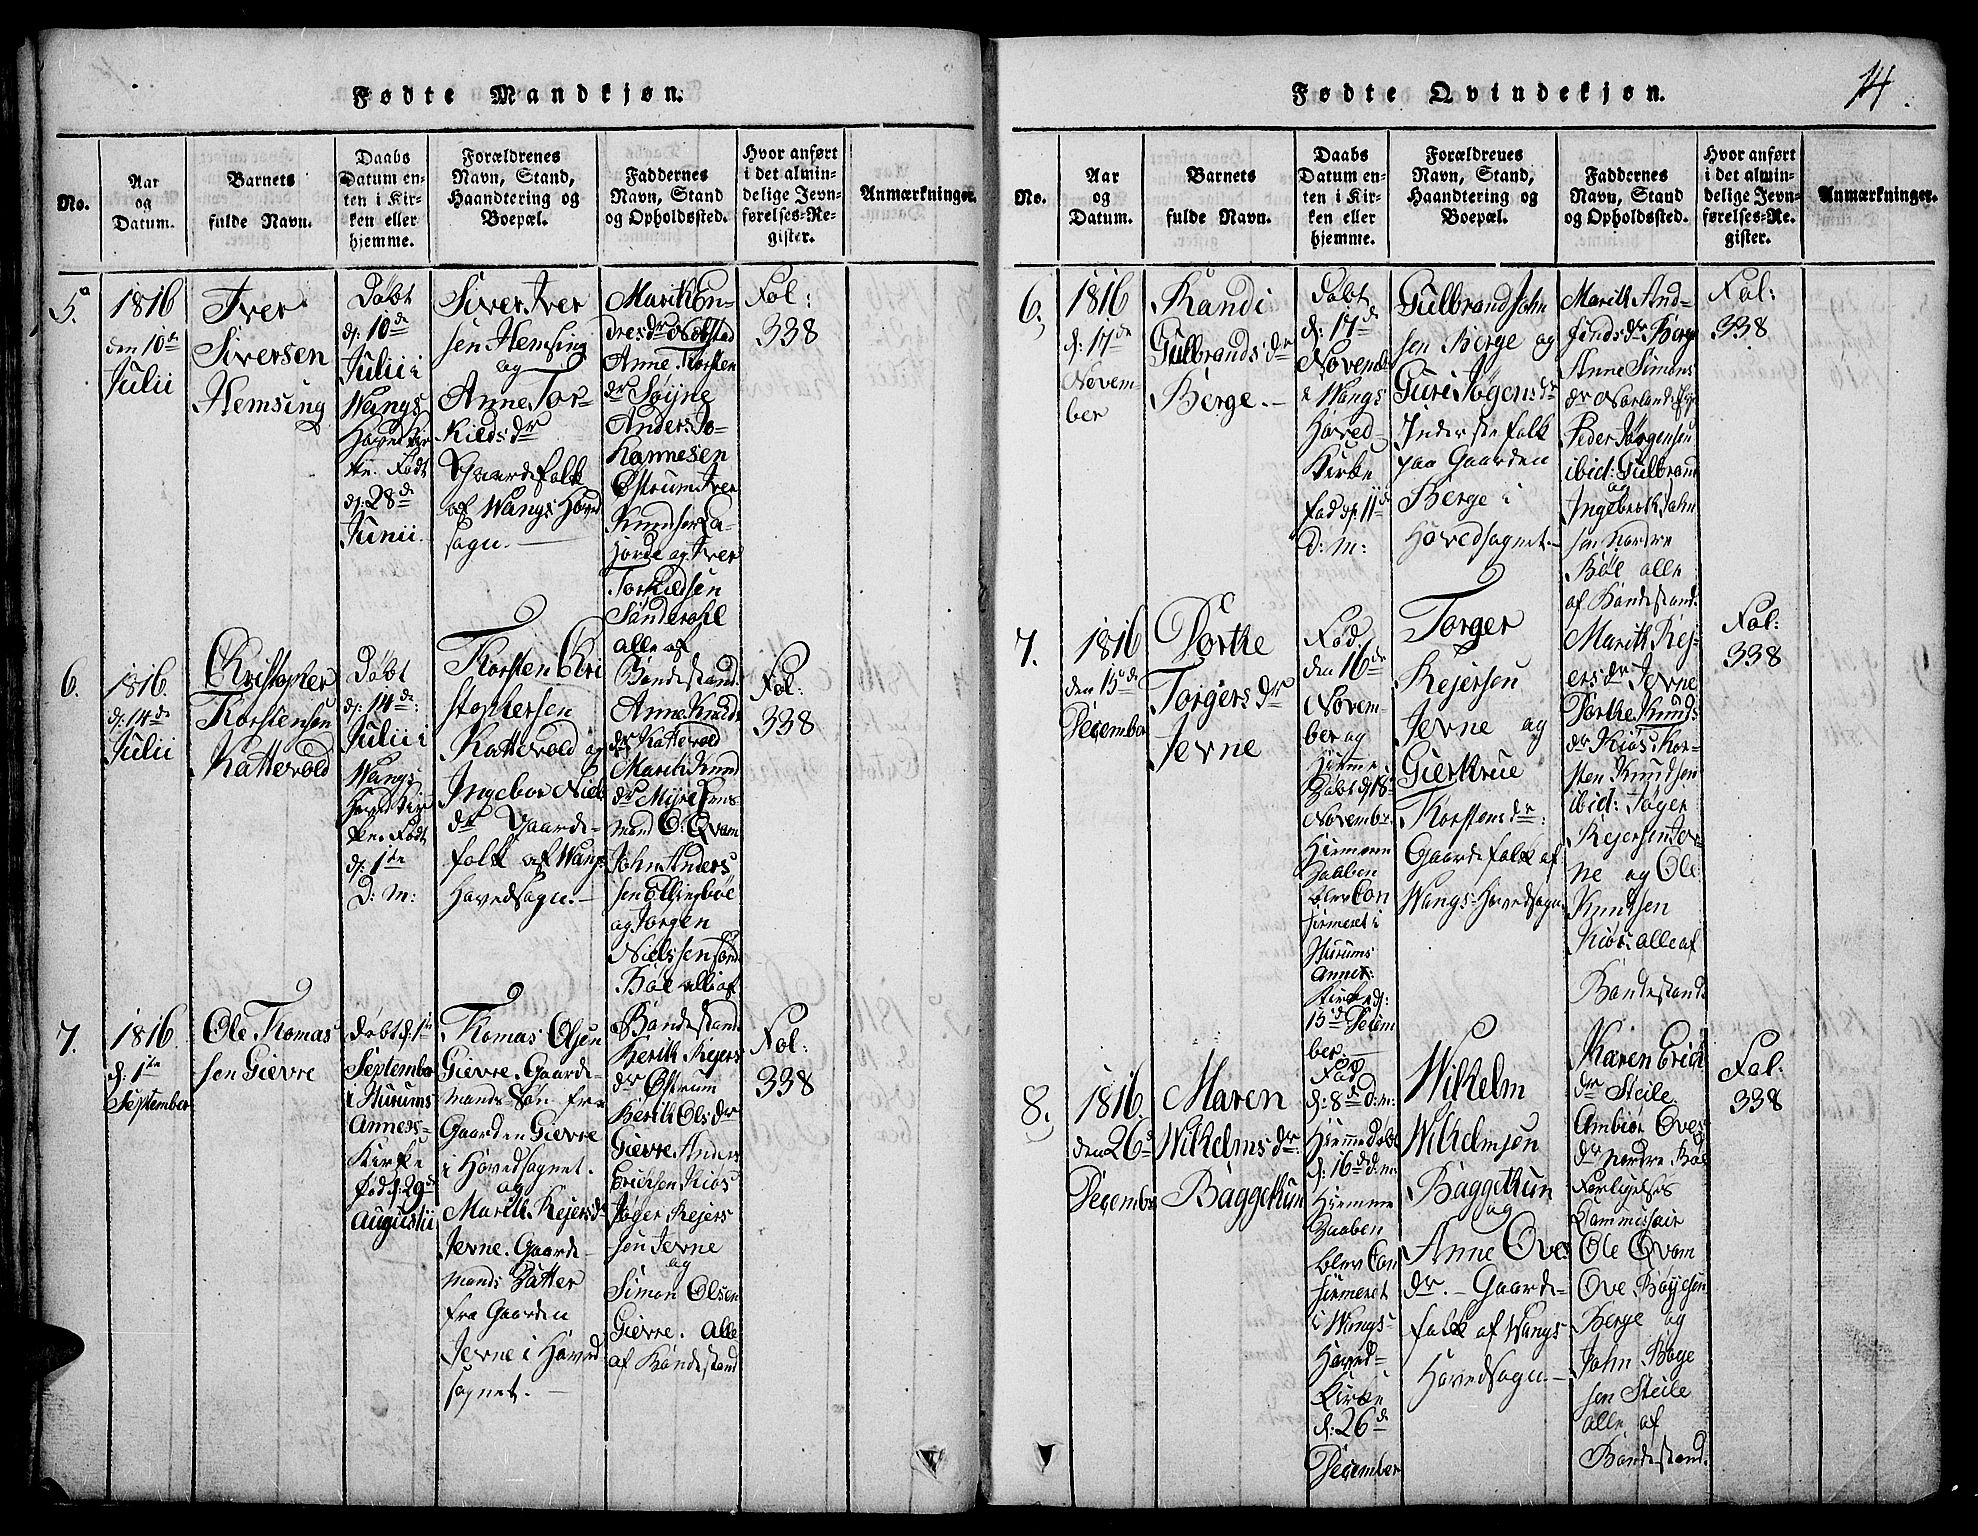 Fødte Mandkjøn.
No.
Aar
og
Datum.
Barnets
fulde Navn.
Daabs
Datum en-
ten i Kir-
ken eller
hjemme.
Forældrenes
Navn, Stand,
Haandtering og
Boepæl.
Faddernes
Navn, Stand
og Opholdssted.
Hvor anført
i det almin-
delige Jevn-
førelses-Re-
gister.
Anmærkninger.
5.
1816
den 10de
Julii
Iver
Siversen
Hemsing
Døbt
d: 10de
Julii i
Wangs
Hoved Kir
ke. Født
d: 28de
Junii.
Siver Iver
sen Hemsing
og
Anne Tor-
kildsdr
Gaardefolk
af Wangs Hoved
sogn.
Marith En-
dresdr Nobstad
Anne Torsten
dr Søyne
Anders Jo-
hannesen
Østrum Iver
Knudsen La-
jorde og Iver
Torkildsen
Sønderohl
alle af
Bondestand.
Fol:
338
6.
1816.
d: 14de
Julii
Christopher
Thorstensen
Kattevold
Døbt
d: 14de
Julii i
Wangs
Hoved Kir
ke. Født
d: 1de
D: m:
Thorsten Chri
stophersen
Kattevold og
Ingebor Niels
dr Gaarde-
folk af Wangs
Hovedsogn.
Anne Knuds
dr Kattevold
Marith Knud
dr Myre
mand O: Qvam
John Anders
sen Ellingbøe
og Jørgen
Nielssen
Bøe alle af
Bondestand
Fol:
338
7.
1816.
d: 1de
September
Ole Thomas
sen Gievre
Døbt d: 1de
September
i Hurums
Annex-
Kirke
født d: 29de
Augustii
Thomas Olsen
Gievre. Gaard-
mands Søn fra
Gaarden Gievre
i Hovedsognet.
og
Marith Rejersdr
Jevne. Gaard-
mands Datter
fra Gaarden
Jevne i Hoved
sognet.
Berith Rejers
dr Østrum
Berith Olsdr
Gievre. Anders
Erichsen Kiøs
Jøger Rejers
sen Jevne
og
Simon Olsen
Gievre. Alle
af Bondestand
Fol:
338
Fødte Qvindekjøn.
14.
No.
Aar
og
Datum.
Barnets
fulde Navn.
Daabs
Datum en-
ten i Kir-
ken eller
hjemme.
Forældrenes
Navn, Stand,
Haandtering og
Boepæl.
Faddernes
Navn, Stand
og Opholdssted.
Hvor anført
i det almin-
delige Jevn-
førelses-Re-
gister.
Anmærkninger.
6.
1816
d: 17de
Novem-
ber
Randi
Gulbrandsdr
Berge.
Døbt
d: 17de
Novembr
i Wangs
Hoved
Kirke
fød d: 11de
D: m:
Gulbrand John
sen Berge og
Guri Jøgensdr
Inderstefolk
paa Gaarden
Berge i
Hovedsognet.
Marith And-
findsdr Berge
Anne Simons
dr
Peder Jørgensen
ibid: Gulbrand
og
Ingebreth John
sen Nordre
Bøe alle
af Bondestand.
Fol:
338
7.
1816
den 15de
December
Dorthe
Torgersdr
Jevne
Fød
den 16de
Novem-
ber og
Hiemme
Døbt d: 18de
Novembr.
Hiemme
Daaben
blev Con
firmeret i
Hurums
Annex:
Kirke d:
15de Decem
ber.
Torger
Rejersen
Jevne og
Giertrue
Thorstensdr:
Gaardefolk af
Wangs Hovedsogn
Marith Rej-
ersdr Jevne
Dorthe Knuds
dr Kiøs. Tor-
sten Knudsen
ibid: Jøger
Rejersen Jev-
ne og Ole
Knudsen
Kiøs alle af
Bondestand
Fol:
338
8.
1816.
den 26de
December
Maren
Wilhelmsdr:
Baggethun
Fød
d: 8de D: m:
Hiemmedøbt
d: 16de d: m:
Hiemme
Daaben
blev Con
firmeret
i Wangs-
Hoved-
Kirke
d: 26de
December
Wilhelm
Wilhelmsen
Baggethun
og
Anne Ove
dr. Gaarde-
folk af Wangs
Hovedsogn.
Karen Erich
dr Steile.
Ambiør Oves
dr Nordre Bøe
Forligelses
Commissair
Ole Qvam
Ove Bøyesen
Berge og
John Boye
sen Steile
alle af
Bondestand.
Fol:
338